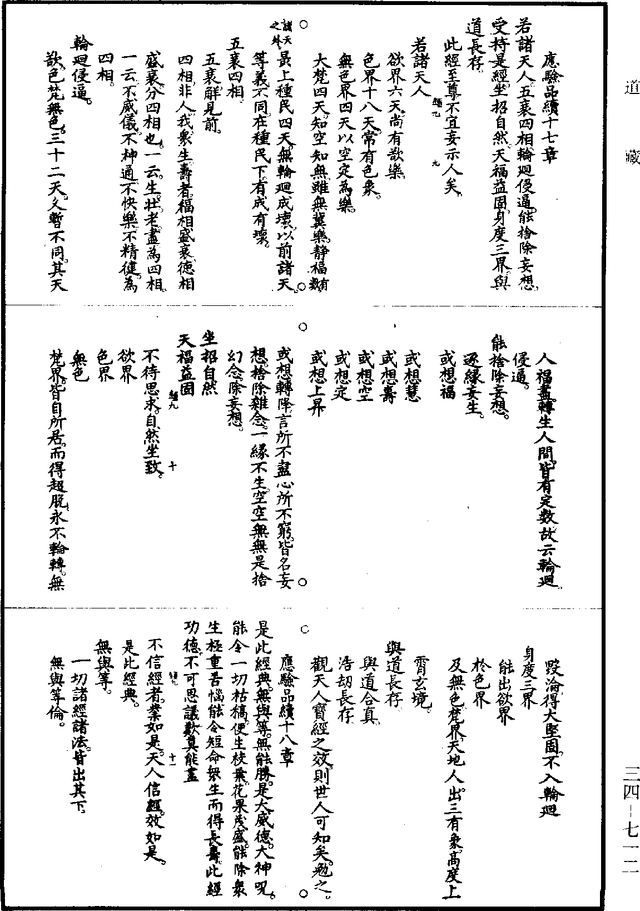 道藏
應驗品續十七章
若諸天人五衰四相輪迴侵逼能捨除妄想
受持是經坐招自然天福益固身度三界與
道長存
此經至尊不宜妄示人矣
若諸天人
欲界六天尚有歆樂
色界十八天常有色象
無色界四天以空定為樂
大梵四天知空知無雖無冀樂靜福數
諸天之外最上種民四天無輪迴成壞以前諸天
等義不同在種民下有成有壞
五衰四相
五衰解見前
四相非人我衆生壽者福相盛衰德相
盛衰分四相也一云生壯老盡為四相
一云不威儀不神通不快樂不精健為
四相
輪迴侵逼
欲色梵無色三十二天久暫不同其天
人福盡轉生人間皆有定數故云輪迴
侵逼
能捨除妄想
逐緣妄生
或想福
或想慧
或想壽
或想空
或想定
或想上昇
或想轉降言所不盡心所不窮皆名妄
想捨除雜念一緣不生空空無無是捨
幻念除妄想
坐招自然
天福益固
不待思求自然坐致
欲界
色界
無色
梵界皆自所居而得超脫永不輪轉無
毀淪得大堅固不入輪迴
身度三界
能出欲界
於色界
及無色梵界天地人出三有象高度上
霄玄境
與道長存
與道合真
浩劫長存
觀天人寶經之效則世人可知矣勉之
應驗品續十八章
是此經典無與等無能勝是大威德大神呪
能令一切枯槁便生枝葉花果茂盛能除衆
生極重苦惱能令短命衆生而得長壽此經
功德不可思議歎莫能盡
不信經者業如是天人信經效如是
是此經典
無與等
一切諸經諸法皆出其下
無與等倫
三四—七一二